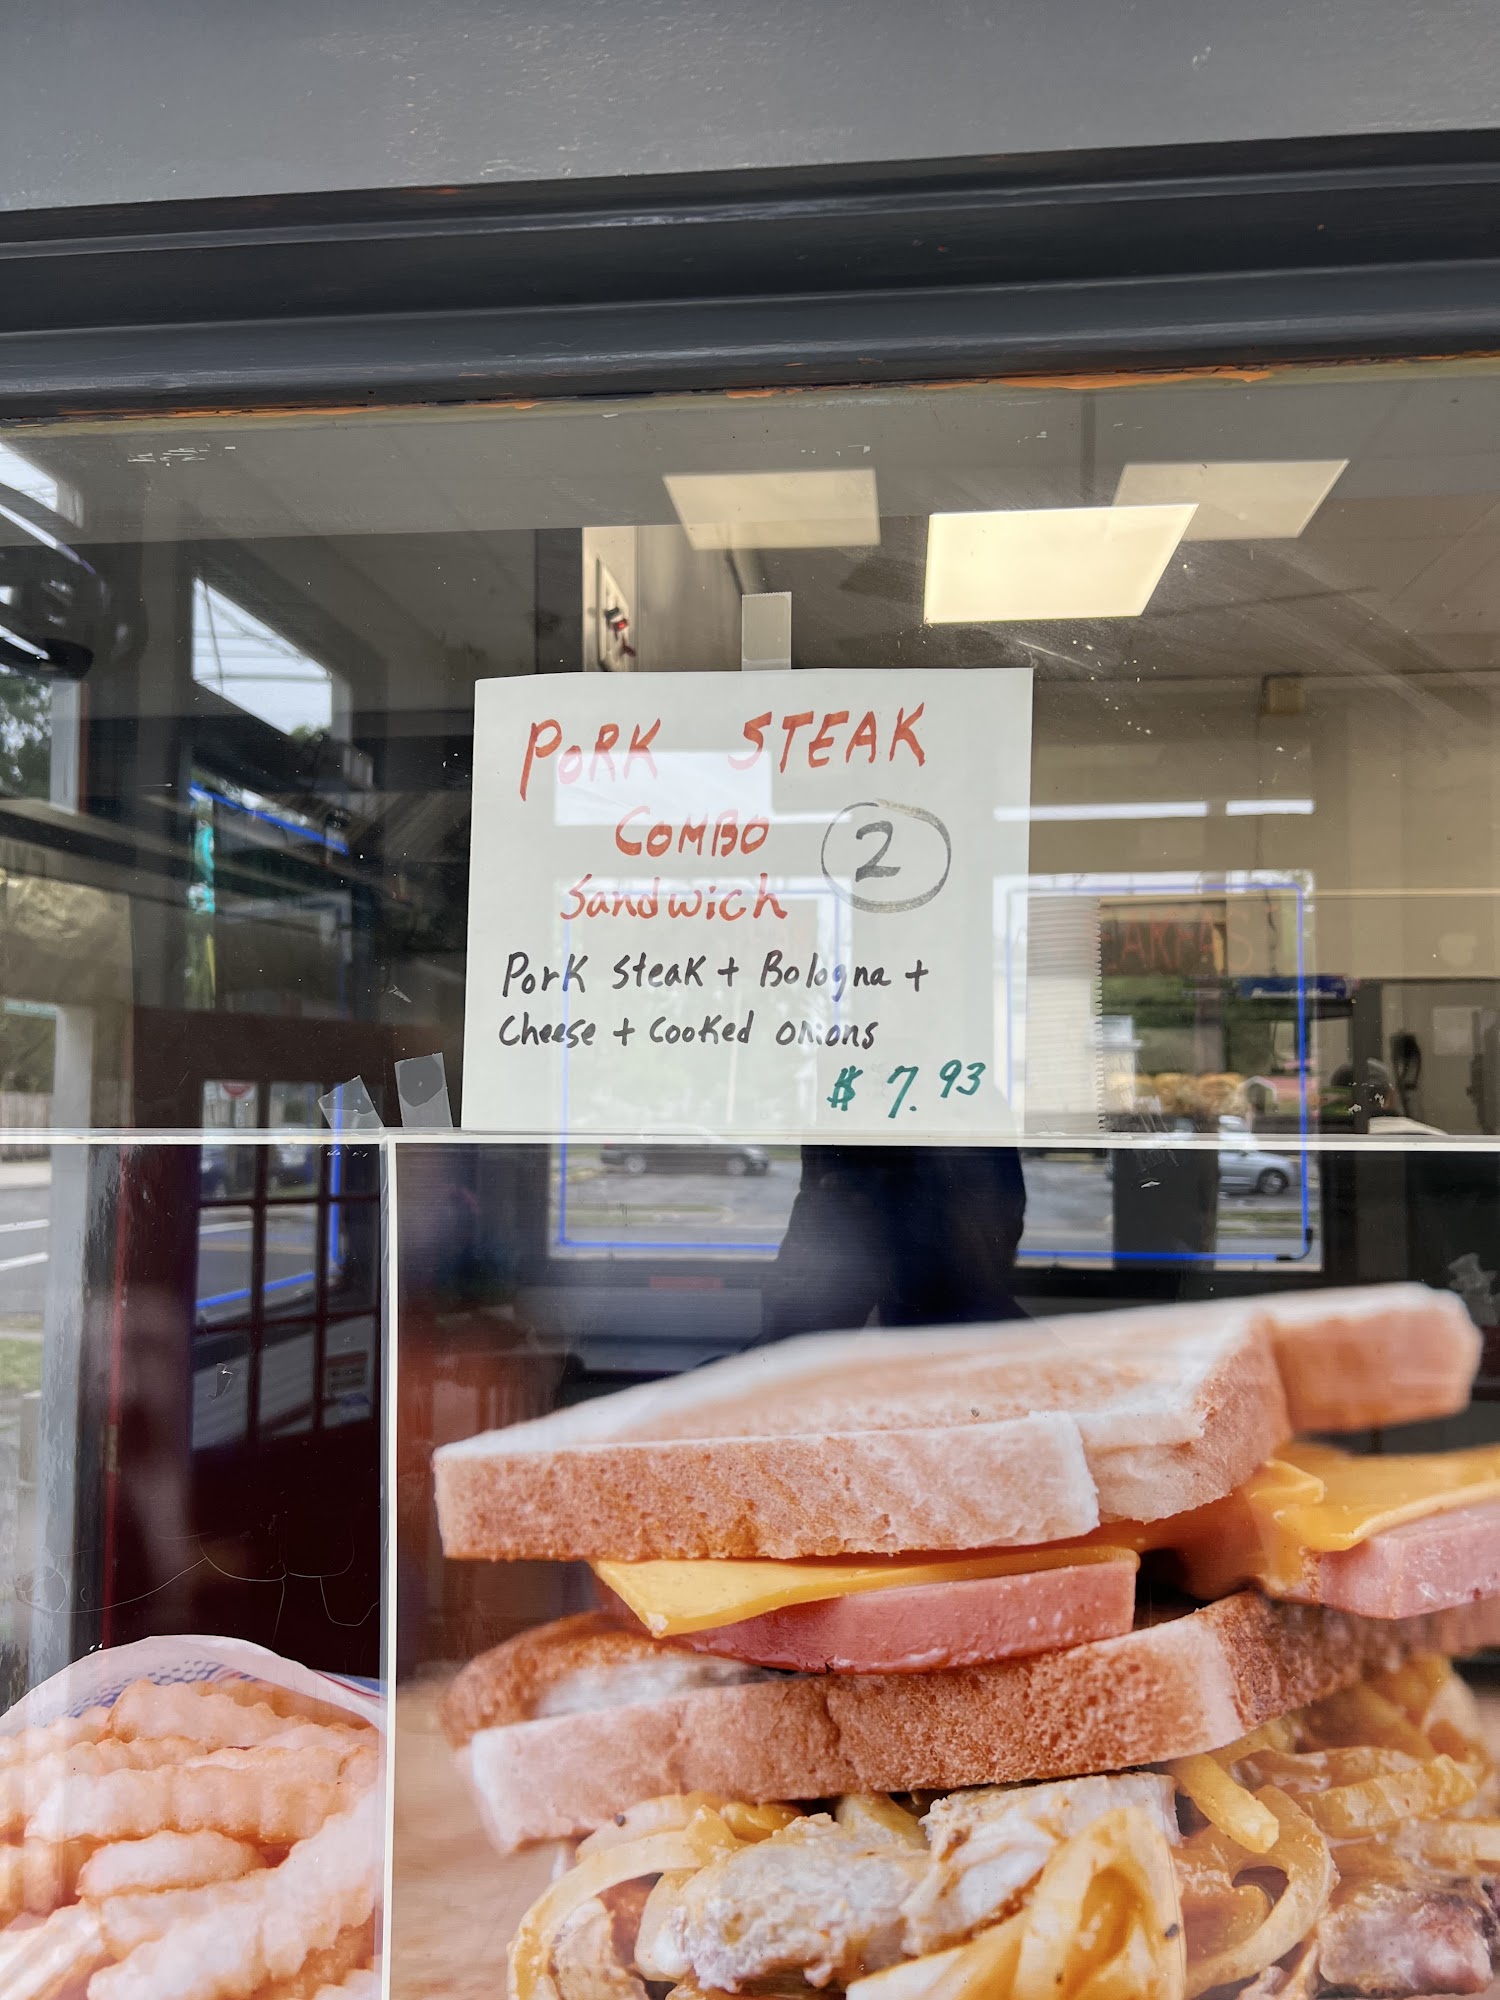 PORK STEAK
COMBO
Sandwich
2
Pork steak + Bologna +
Cheese + Cooked onions
$ 7.93